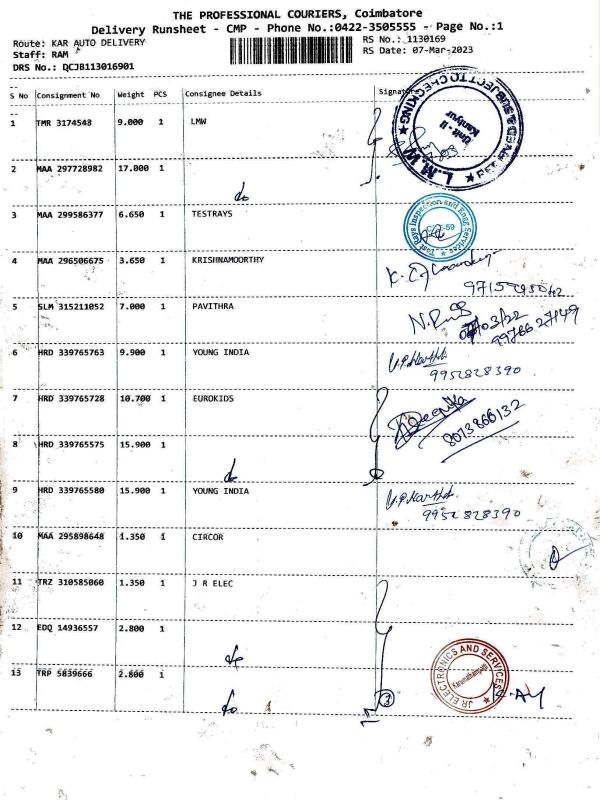 THE PROFESSIONAL COURIERS, Coimbatore
Delivery Runsheet - CMP - Phone No.:0422-3505555 - Page No.:1
Route: KAR AUTO DELIVERY RS No.: 1130169
Staff: RAM RS Date: 07-Mar-2023
DRS No.: QCJB113016901
S No Consignment No Weight PCS Consignee Details Signature
1 TMR 3174548 9.000 1 LMW
2 MAA 297728982 17.000 1 do
3 MAA 299586377 6.650 1 TESTRAYS
4 MAA 296506675 3.650 1 KRISHNAMOORTHY
5 SLM 315211052 7.000 1 PAVITHRA
9976627149
6 HRD 339765763 9.900 1 YOUNG INDIA
9952828390
7 HRD 339765728 10.700 1 EUROKIDS
8073866132
8 HRD 339765575 15.900 1 do
9 HRD 339765580 15.900 1 YOUNG INDIA
9952828390
10 MAA 295898648 1.350 1 CIRCOR
11 TRZ 310585060 1.350 1 J R ELEC
12 EDQ 14936557 2.800 1 do
13 TRP 5839666 2.800 1 do
3
L.M.W
SUBJECT TO CHECKING
Unit - II
Kaniyur
Test Rays Inspection and Engg Services
JR ELECTRONICS AND SERVICES